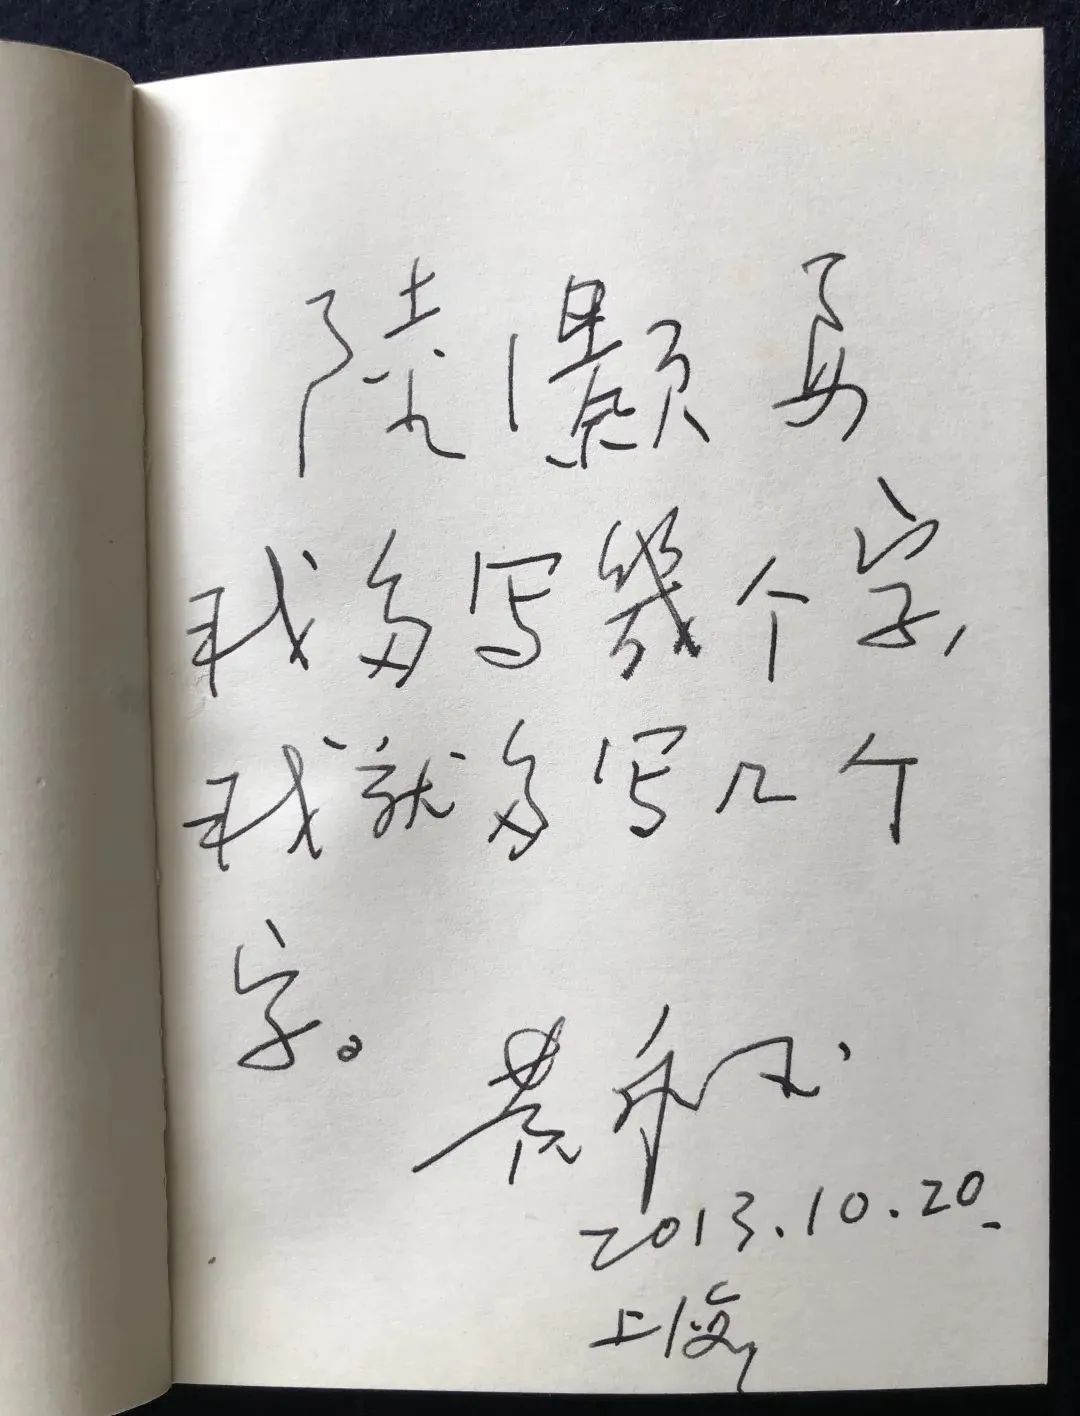 陸灝要
我多写幾个字,
我就多写几个
字。
董秀玉
2013.10.20.
上海